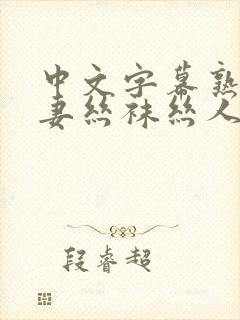 中文字幕熟
妻丝袜丝人
段睿超